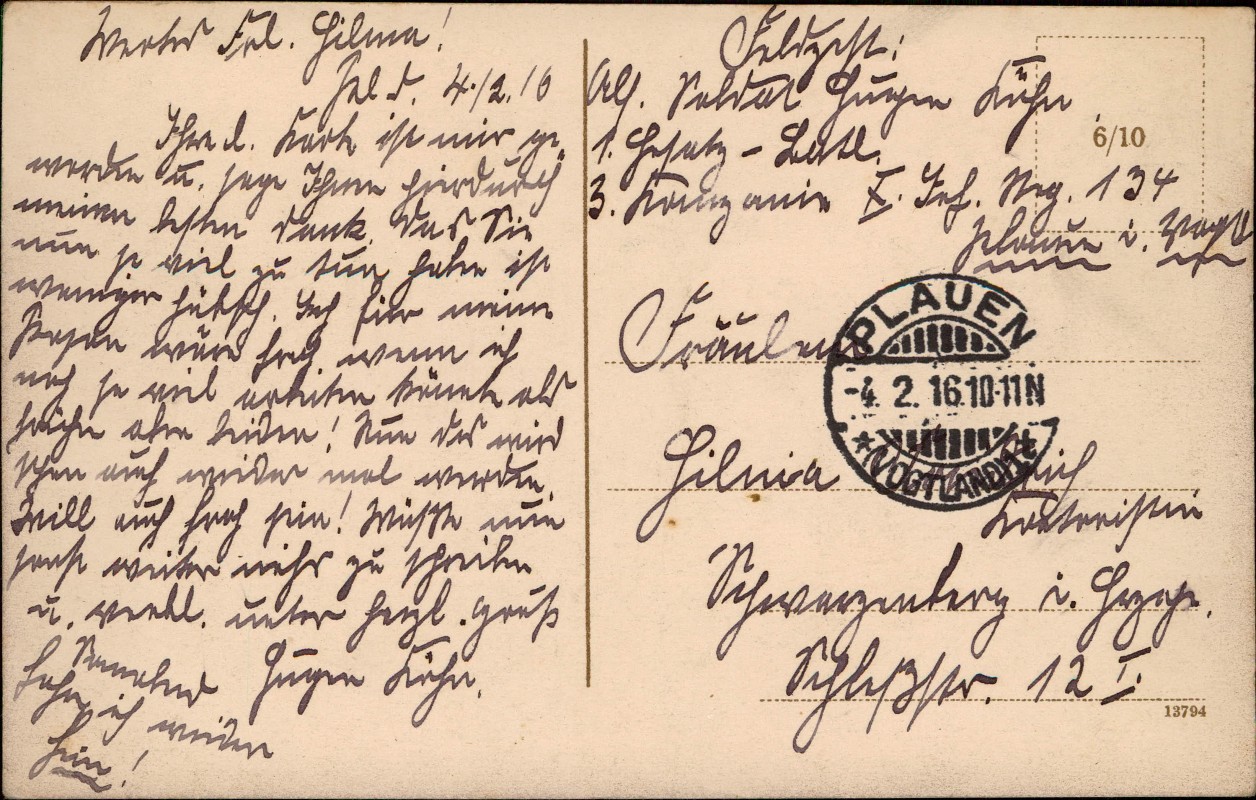 Wertes Frl. Hilma!
Feld. 4./2.16
Ihre l. Karte ist mir ge-
worden u. sage Ihnen hierdurch
meinen besten Dank. Das Sie
nun so viel zu tun haben ist
weniger hübsch. Ich für meine
Person wäre froh wenn ich
noch so viel arbeiten könnte als
früher aber leider! Nun das wird
schon auch wieder mal werden.
Will auch froh sein! Wüßte nun
sonst weiter nichts zu schreiben
u. verbl. unter herzl. Gruß
Eugen Köhn.
Sonnabend
fahre ich wieder
heim!
Feldpost:
Abs. Soldat Eugen Köhn
1. Ersatz-Batl.
3. Kompanie X. Inf. Reg. 134
Plauen i. Vogtl.
6/10
Fräulein
PLAUEN
-4. 2. 16. 10-11N
* (VOGTLAND) 1 t
Hilma
Kontoristin
Schwarzenberg i. Erzgeb.
Schloßstr. 12 I.
13794